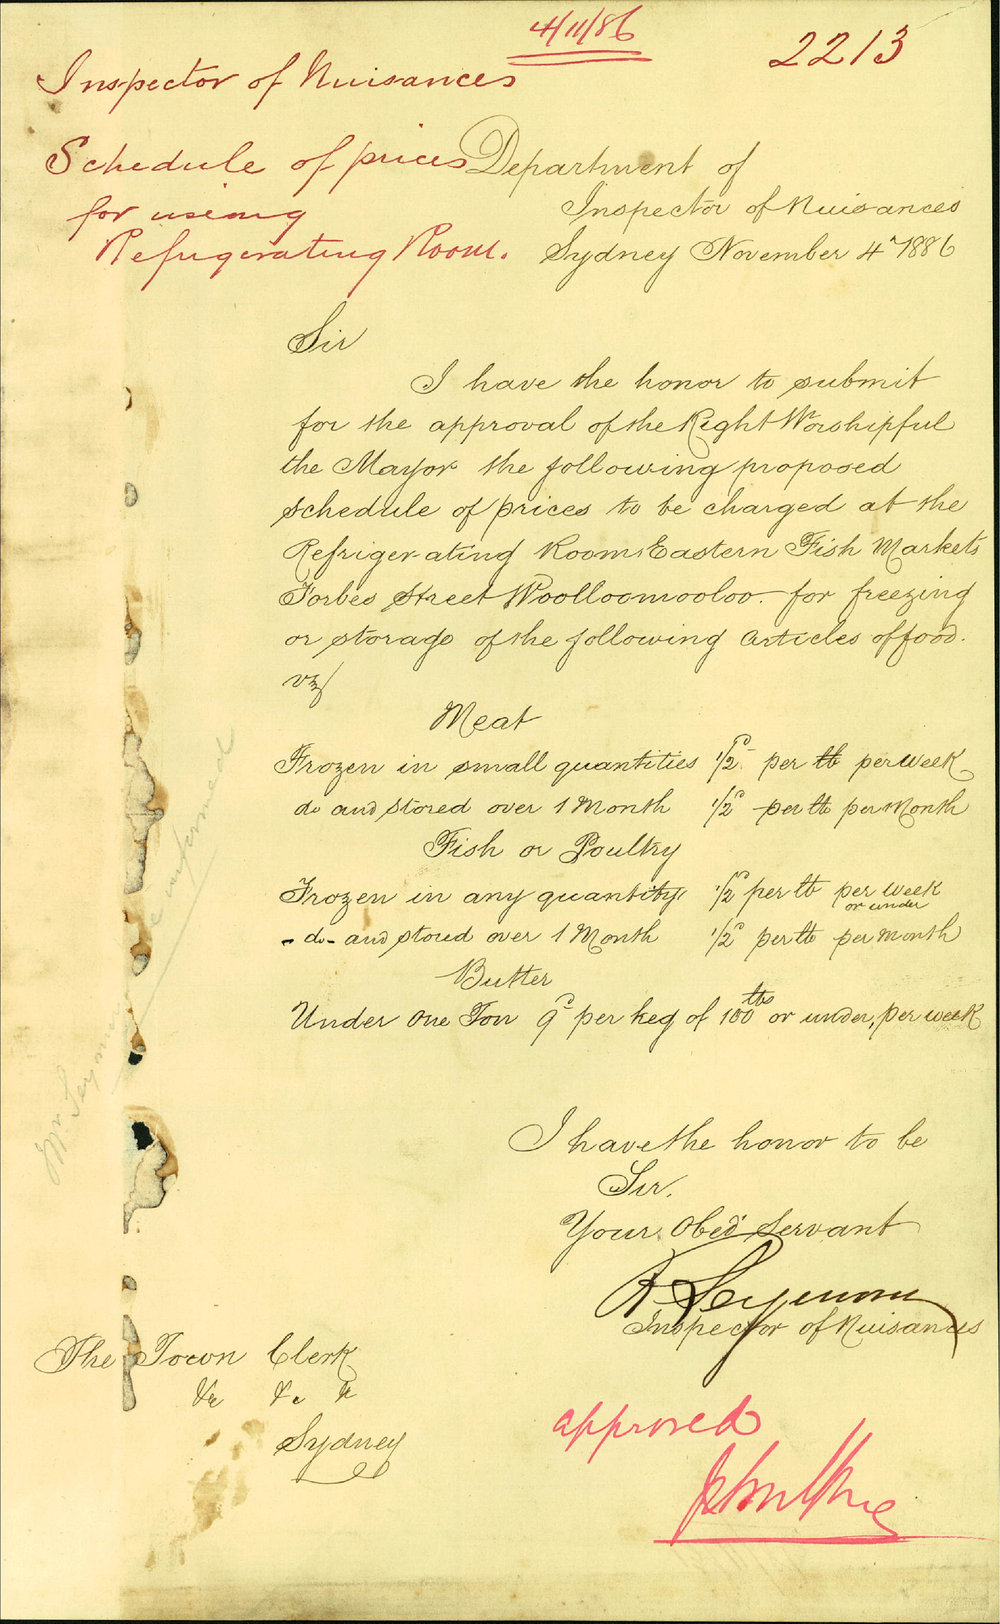 4/11/86
2213
Inspector of Nuisances
Schedule of prices
for using
Refrigerating Room.
Department of
Inspector of Nuisances
Sydney November 4th 1886
Sir
I have the honor to submit
for the approval of the Right Worshipful
the Mayor the following proposed
schedule of prices to be charged at the
Refrigerating Room, Eastern Fish Markets
Forbes Street Woolloomooloo. for freezing
or storage of the following articles of food.
viz
Meat
Frozen in small quantities 1/2d per lb per week
do and stored over 1 Month 1/2d per lb per Month
Fish or Poultry
Frozen in any quantity 1/2d per lb per week
or under
- do - and stored over 1 Month 1/2d per lb per Month
Butter
Under One Ton 9d per keg of 100 lbs or under, per week
I have the honor to be
Sir.
Your Obed Servant
R Seymour
Inspector of Nuisances
The Town Clerk
&c &c &c
Sydney
approved
Mr Seymour informed